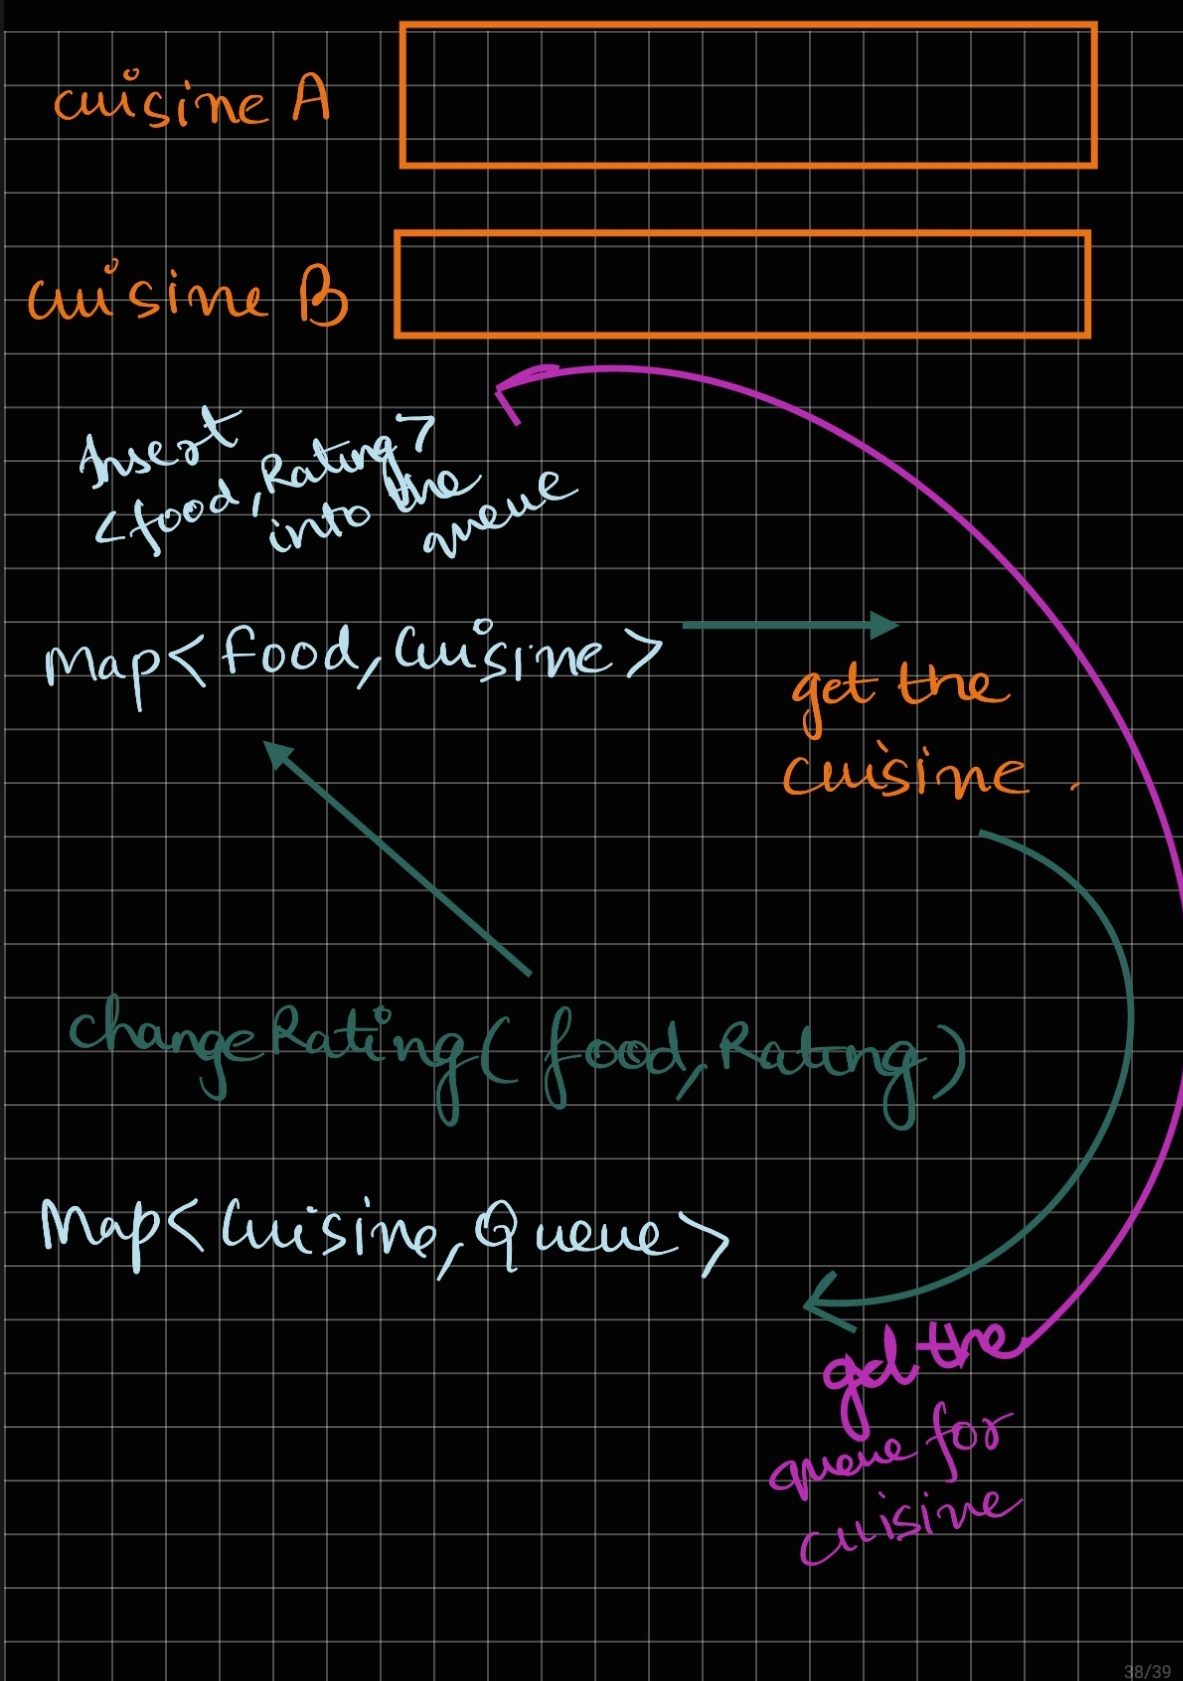 cuisine A
cuisine B
Insert
<food, Rating>
into the
queue
Map<Food, Cuisine>
get the
cuisine.
changeRating(food, Rating)
Map<Cuisine, Queue>
get the
queue for
cuisine
38/39